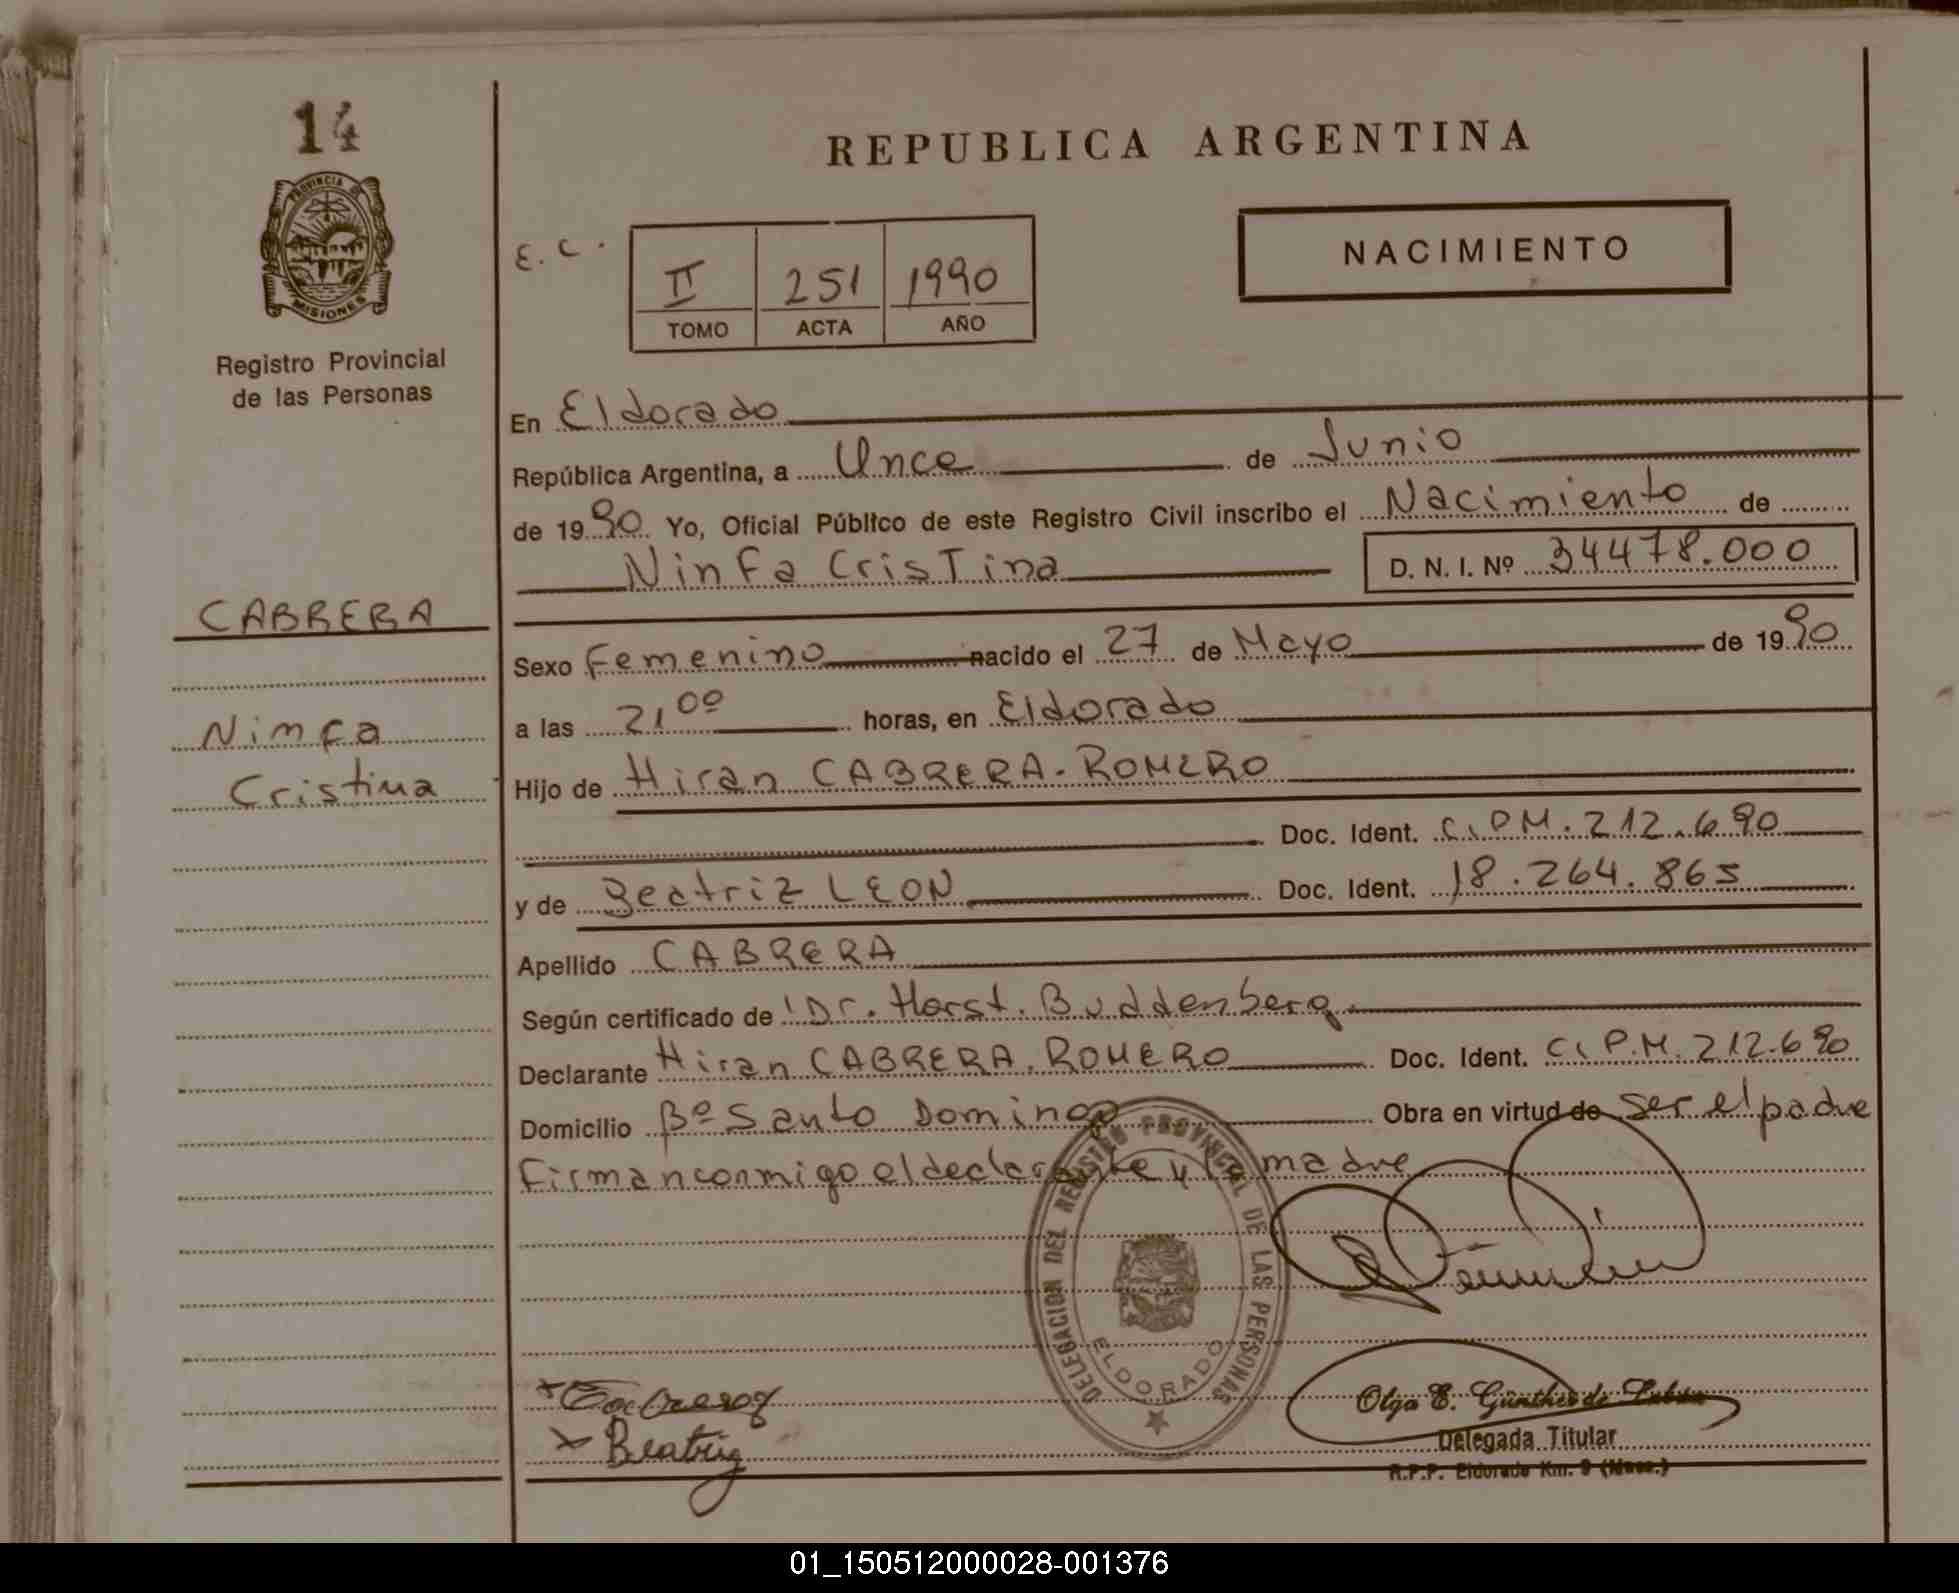 14
PROVINCIA DE
MISIONES
Registro Provincial
de las Personas
CABRERA
Ninfa
Cristina
REPUBLICA ARGENTINA
E. C.
II 251 1990
TOMO ACTA AÑO
NACIMIENTO
En Eldorado
República Argentina, a Once de Junio
de 1990 Yo, Oficial Público de este Registro Civil inscribo el Nacimiento de
Ninfa Cristina D. N. I. Nº 34478.000
Sexo Femenino nacido el 27 de Mayo de 1990
a las 21 00 horas, en Eldorado
Hijo de Hiran CABRERA-ROMERO
Doc. Ident. C.I.P.M. 212.690
y de Beatriz LEON Doc. Ident. 18.264.865
Apellido CABRERA
Según certificado de Dr. Horst. Buddenberg.
Declarante Hiran CABRERA. ROMERO Doc. Ident. C.I.P.M. 212.690
Domicilio Bº Santo Domingo Obra en virtud de ser el padre
Firman conmigo el declarante y la madre
DELEGACION DEL REGISTRO PROVINCIAL DE LAS PERSONAS
ELDORADO
Beatriz
Olga E. Günther de
Delegada Titular
R.P.P. Eldorado Km. 9 (Mnes.)
01_150512000028-001376